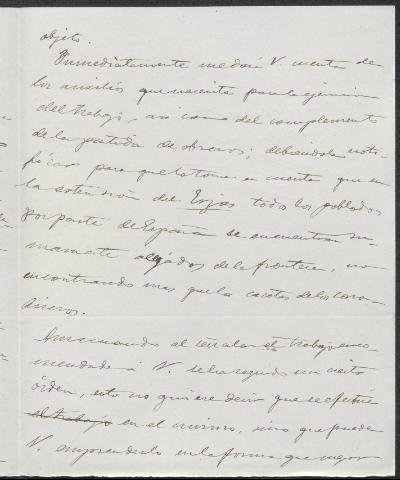 objeto.
Inmediatamente me dará V. cuenta de
los auxilios que necesita para la ejecucion
del trabajo, asi como del complemento
de la partida de obreros; debiendole noti-
ficar para que lo tome en cuenta que en
la estension del Rojas todos los poblados
por parte de España se encuentran su-
mamente alejados de la frontera, no
encontrando mas que las casetas de los cara-
bineros.
al señalar el trabajo enco-
mendado á V. se ha seguido un cierto
órden, esto no quiere decir que se efectue
el trabajo en el mismo, sino que puede
V. emprenderlo en la forma que mejor